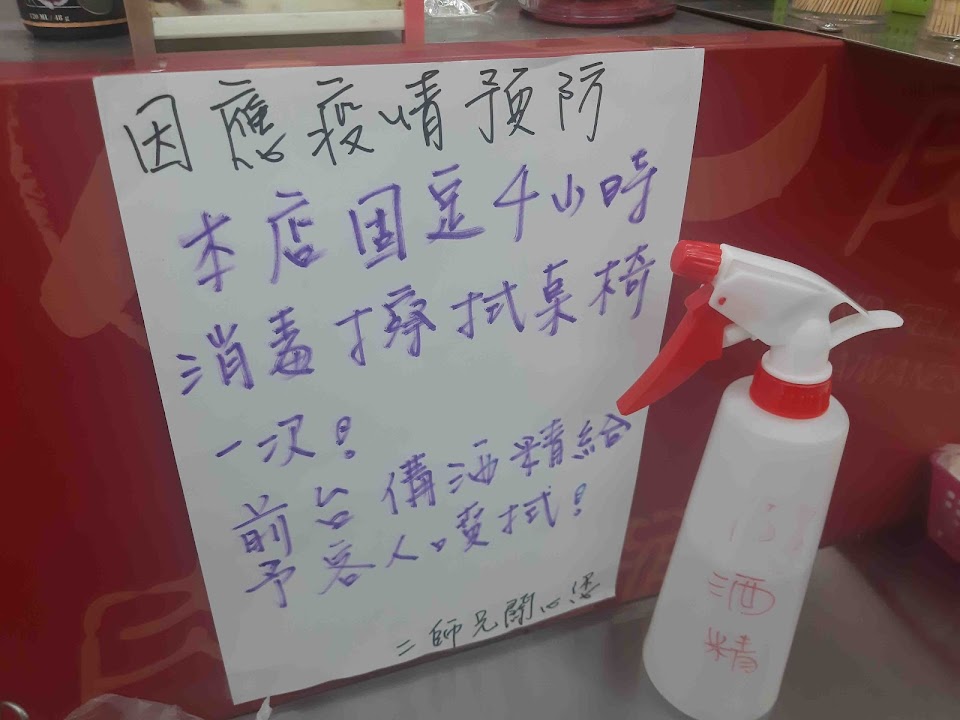 因應疫情預防
本店固定4小時
消毒擦拭桌椅
一次!
前台備酒精給
予客人噴拭!
二師兄關心您
酒
精
120 ML / 48 g